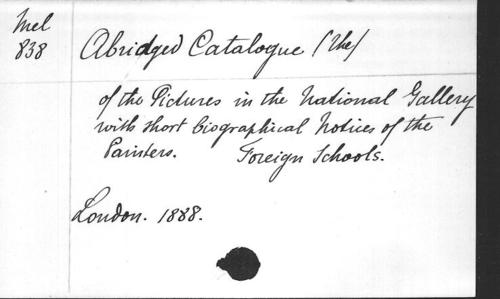 Mel
838
Abridged Catalogue (The)
of the Pictures in the National Gallery
with short biographical Notices of the
Painters. Foreign Schools.
London. 1888.